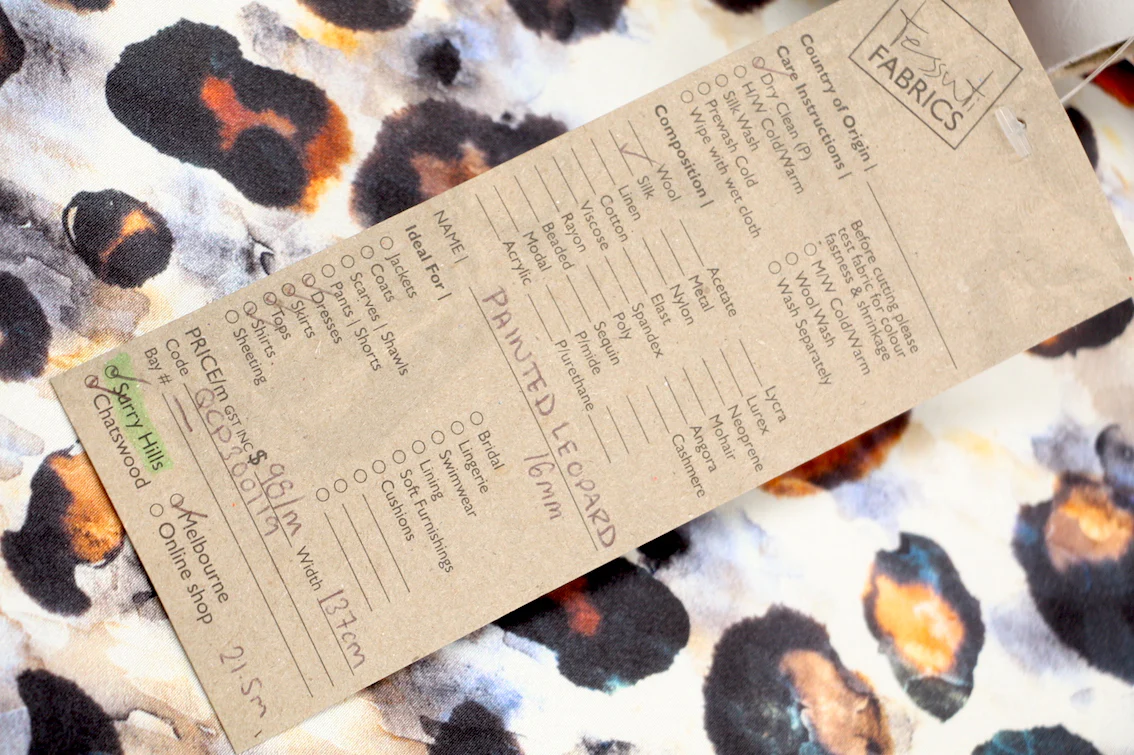 Tessuti
FABRICS
Country of Origin |
Care Instructions |
Dry Clean (P)
H/W Cold/Warm
Silk Wash
Prewash Cold
Wipe with wet cloth
Before cutting please
test fabric for colour
fastness & shrinkage
M/W Cold/Warm
Wool Wash
Wash Separately
Composition |
Wool
Silk
Linen
Cotton
Viscose
Rayon
Beaded
Modal
Acrylic
Acetate
Metal
Nylon
Elast
Spandex
Poly
Sequin
P/mide
P/urethane
Lycra
Lurex
Neoprene
Mohair
Angora
Cashmere
NAME | PAINTED LEOPARD
16mm
Ideal For |
Jackets
Coats
Scarves | Shawls
Pants | Shorts
Dresses
Skirts
Tops
Shirts
Sheeting
Bridal
Lingerie
Swimwear
Lining
Soft Furnishings
Cushions
PRICE/m GST INC $ 98/m Width 137cm
Code QCP200119
Bay #
Surry Hills
Chatswood
Melbourne
Online shop
21.5m